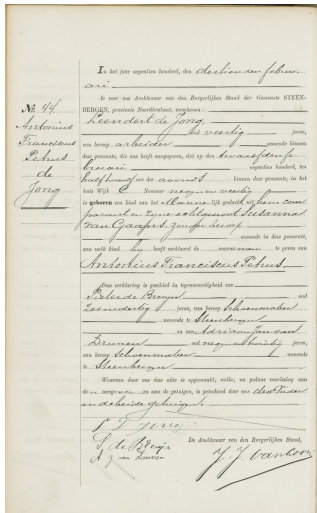 In het jaar negentien honderd, den dertienden februari
is voor ons Ambtenaar van den Burgerlijken Stand der Gemeente STEEN-
BERGEN, provincie Noordbrabant, verschenen:
Leendert de Jong
oud veertig jaren,
van beroep arbeider wonende binnen
deze gemeente, die ons heeft aangegeven, dat op den twaalfden fe-
bruari negentien honderd, ten
half twaalf ure des avonds binnen deze gemeente, in het
huis Wijk C Nummer negen en veertig
is geboren een kind van het Mannelijk geslacht, uit hem com-
parant en zijne echtgenoot Susanna
van Gaapen, zonder beroep
wonende in deze gemeente,
aan welk kind hij heeft verklaard de voornamen te geven van
Antonius Franciscus Petrus
Deze verklaring is geschied in tegenwoordigheid van
Pieter de Bruyn oud
zes en dertig jaren, van beroep Schoenmaker
wonende te Steenbergen
en van Adriaan Jan van
Drunen oud negen en twintig jaren,
van beroep Schoenmaker wonende
te Steenbergen
Waarvan door ons deze akte is opgemaakt, welke, na gedane voorlezing aan
de aangever en aan de getuigen, is geteekend door ons den Vader
en de beide getuigen.
De Ambtenaar van den Burgerlijken Stand,
L d Jong
P de Bruijn
A J van Drunen
No. 44
Antonius
Franciscus
Petrus
de
Jong